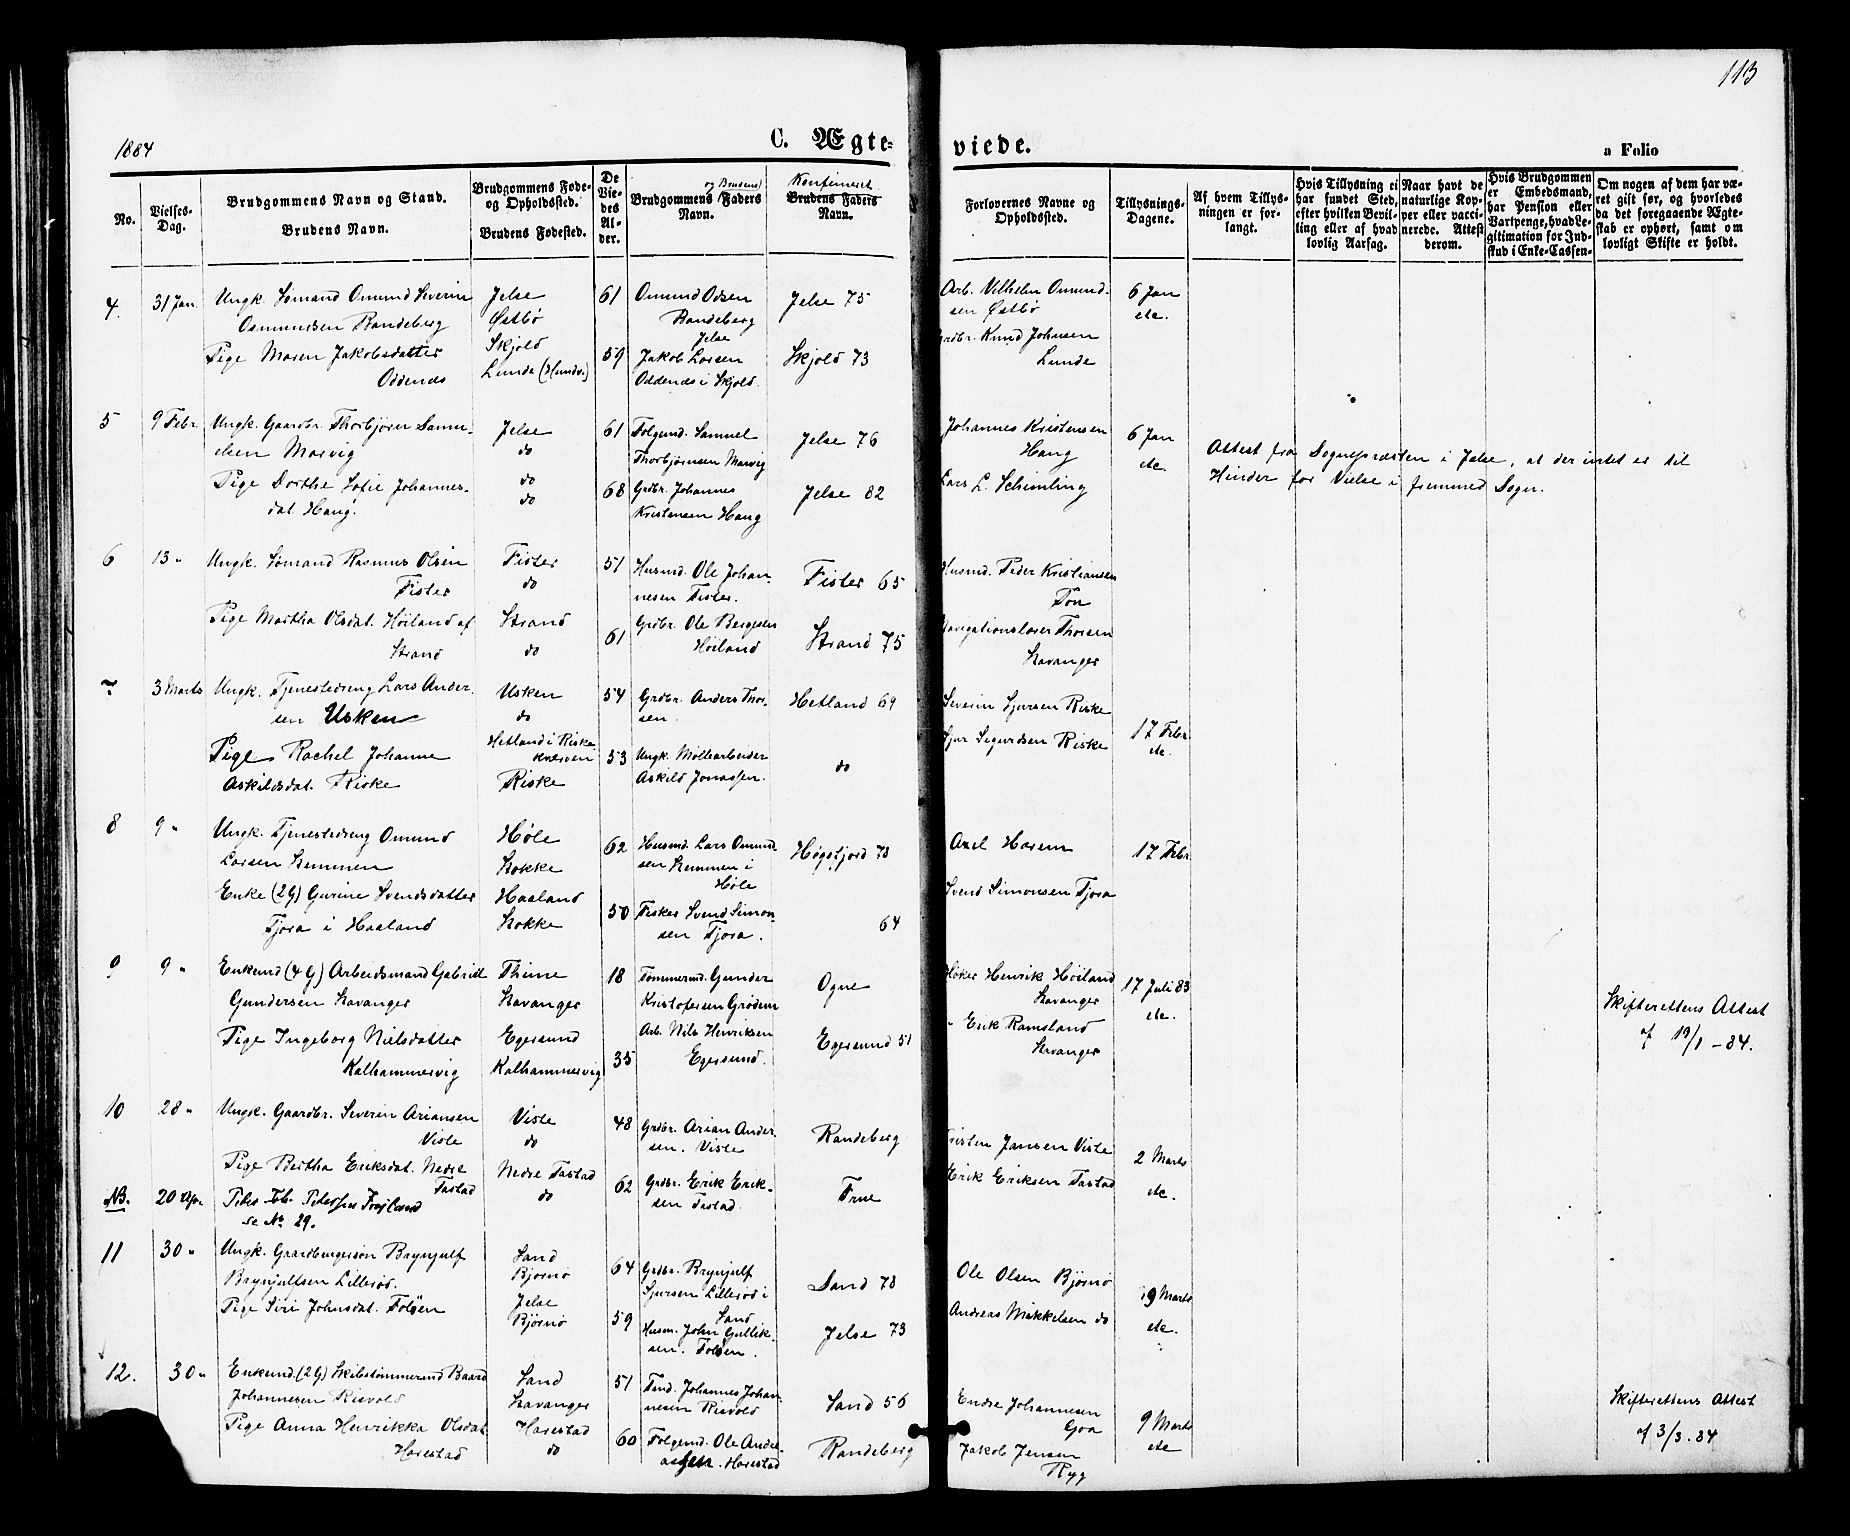 113
1884
C. Ægte-
viede.
a Folio
No.
Vielses-
Dag.
Brudgommens Navn og Stand.
Brudens Navn.
Brudgommens Føde-
og Opholdssted.
Brudens Fødested.
De
Vie-
des
Al-
der.
og Brudens
Brudgommens Faders
Navn.
Konfirmeret
Brudens Faders
Navn.
Forlovernes Navne og
Opholdssted.
Tillysnings-
Dagene.
Af hvem Tillys-
ningen er for-
langt.
Hvis Tillysning ei
har fundet Sted,
efter hvilken Bevil-
ling eller af hvad
lovlig Aarsag.
Naar havt de
naturlige Kop-
per eller vacci-
nerede. Attest
derom.
Hvis Brudgommen
er Embedsmand,
har Pension eller
Vartpenge, hvad Le-
gitimation for Ind-
skud i Enke-Cassen.
Om nogen af dem har væ-
ret gift før, og hvorledes
da det foregaaende Ægte-
skab er ophørt, samt om
lovligt Skifte er holdt.
4.
31 Jan.
Ungk. Sømand Omund Severin
Osmundsen Randeberg
Pige Maren Jakobsdatter
Oddenes
Jelse
Østbø
Skjold
Lunde (Hundv.)
61
59
Omund Odsen
Randeberg
Jelse
Jakob Larsen
Oddenes i Skjold.
Jelse 75
Skjold 73
Arb. Vilhelm Omund-
sen Østbø
Grdbr. Knud Johnsen
Lunde
6 Jan
etc.
5
9 Febr.
Ungk. Gaardbr. Thorbjørn Samu-
elsen Marvig
Pige Dorthe Sofie Johannes-
dat. Haug.
Jelse
do
do
do
61
68
Folgemd. Samuel
Thorbjørnsen Marvig
Grdbr. Johannes
Kristensen Haug
Jelse 76
Jelse 82
Johannes Kristensen
Haug
Lars L. Schimling
6 Jan
etc.
Attest fra Sognepræsten i Jelse, at der intet er til
Hinder for Vielse i fremmed Sogn.
6
13 "
Ungk. Sømand Rasmus Olsen
Fister
Pige Martha Olsdat. Høiland af
Strand
Fister
do
Strand
do
51
61
Husmd. Ole Johan-
nesen Fister.
Grdbr. Ole Bergesen
Høiland
Fister 65
Strand 75
Husmd. Peder Kristiansen
Tou
Navigationslærer Thorsen
Stavanger
7
3 Marts
Ungk. Tjenestedreng Lars Ander-
sen Usken
Pige Rachel Johanne
Askildsdat. Riske
Usken
do
Hetland i Riske-
kredsen
Riske
54
53
Grdbr. Anders Thor-
sen.
Ungk. Møllearbeider
Askild Jonassen.
Hetland 69
do
Severin Sjursen Riske
Sjur Sigurdsen Riske
17 Febr.
etc.
8
9 "
Ungk. Tjenestedreng Omund
Larsen Kemmen
Enke (2G) Gurine Svendsdatter
Tjora i Haaland
Høle
Stokke
Haaland
Stokke
62
50
Husmd. Lars Omund-
sen Kemmen i
Høle
Fisker Svend Simon-
sen Tjora.
Høgsfjord 78
64
Axel Harem
Svend Simonsen Tjora
17 Febr
9
9 "
Enkemd (4 G) Arbeidsmand Gabriel
Gundersen Stavanger
Pige Ingeborg Nilsdatter
Kalhammervig
Thime
Stavanger
Egersund
Kalhammervig
18
35
Tømmermd. Gunder
Kristofersen Grødem
Arb. Nils Henriksen
Egersund.
Ogne
Egersund 51
Høker Henrik Høiland
Stavanger
" Erik Ramsland
Stavanger
17 Juli 83
etc.
Skifterettens Attest
af 19/1 - 84.
10
28 "
Ungk. Gaardbr. Severin Ariansen
Viste
Pige Bertha Eriksdat. Nedre
Tastad
Viste
do
Nedre Tastad
do
48
62
Grdbr. Arian Ander-
sen. Viste
Grdbr. Erik Erik-
sen Tastad.
Randeberg
Frue
Kristen Jansen Viste
Erik Eriksen Tastad
2 Marts
etc.
NB.
20 Apr.
se No 29.
11
30 "
Ungk. Gaardbrugersøn Brynjulf
Brynjulfsen Lillerød.
Pige Siri Johnsdat. Foløen
Sand
Bjørnø
Jelse
Bjørnø
64
59
Grdbr. Brynjulf
Sjursen Lillerød i
Sand
Husm. John Gullik-
sen. Foløen.
Sand 78
Jelse 73
Ole Olsen Bjørnø
Andreas Mikkelsen do
9 Marts
etc.
12.
30 "
Enkemd. (2G) Skibstømmermd Baard
Johannesen Risvold
Pige Anna Henrikka Olsdat.
Harestad
Sand
Stavanger
Harestad
do
51
60
Johannes Johan-
nesen Risvold
Folgemd. Ole Andre-
assen. Harestad
Sand 56
Randeberg
Endre Johannesen
Goa
Jakob Jensen
Ryg
9 Marts
etc
Skifterettens Attest
af 3/3. 84